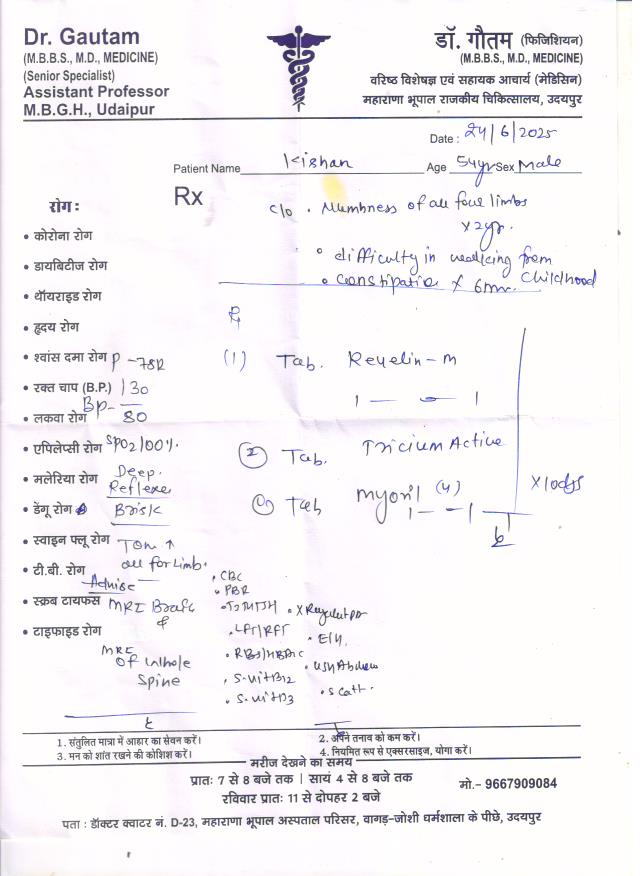 Dr. Gautam
(M.B.B.S., M.D., MEDICINE)
(Senior Specialist)
Assistant Professor
M.B.G.H., Udaipur
डॉ. गौतम (फिजिशियन)
(M.B.B.S., M.D., MEDICINE)
वरिष्ठ विशेषज्ञ एवं सहायक आचार्य (मेडिसिन)
महाराणा भूपाल राजकीय चिकित्सालय, उदयपुर
Date : 24/6/2025
Patient Name Kishan Age 54yr Sex Male
Rx
c/o • Numbness of all four limbs
x 2yr.
• difficulty in walking from
childhood
• Constipation x 6m
रोग :
• कोरोना रोग
• डायबिटीज रोग
• थॉयराइड रोग
• हृदय रोग
• श्वांस दमा रोग P - 78
• रक्त चाप (B.P.) 130
BP-
• लकवा रोग 80
• एपिलेप्सी रोग SPO2 100%
• मलेरिया रोग Deep
Reflexe
• डेंगू रोग Brisk
• स्वाइन फ्लू रोग Tone ↑
all for limb.
• टी.बी. रोग
Advise
• स्क्रब टायफस MRI
&
• टाइफाइड रोग
MRI
of whole
Spine
(1) Tab. -M
1 — — 1
(2) Tab. Tricium Active
Tab (4)
1 — — 1
x 10 days
• CBC
• PBR
• LFT/RFT
• S. Vit B12
• S. Vit D3
1. संतुलित मात्रा में आहार का सेवन करें।
2. अपने तनाव को कम करें।
3. मन को शांत रखने की कोशिश करें।
4. नियमित रूप से एक्सरसाइज, योगा करें।
मरीज देखने का समय
प्रातः 7 से 8 बजे तक | सायं 4 से 8 बजे तक
रविवार प्रातः 11 से दोपहर 2 बजे
मो.- 9667909084
पता : डॉक्टर क्वाटर नं. D-23, महाराणा भूपाल अस्पताल परिसर, वागड़-जोशी धर्मशाला के पीछे, उदयपुर